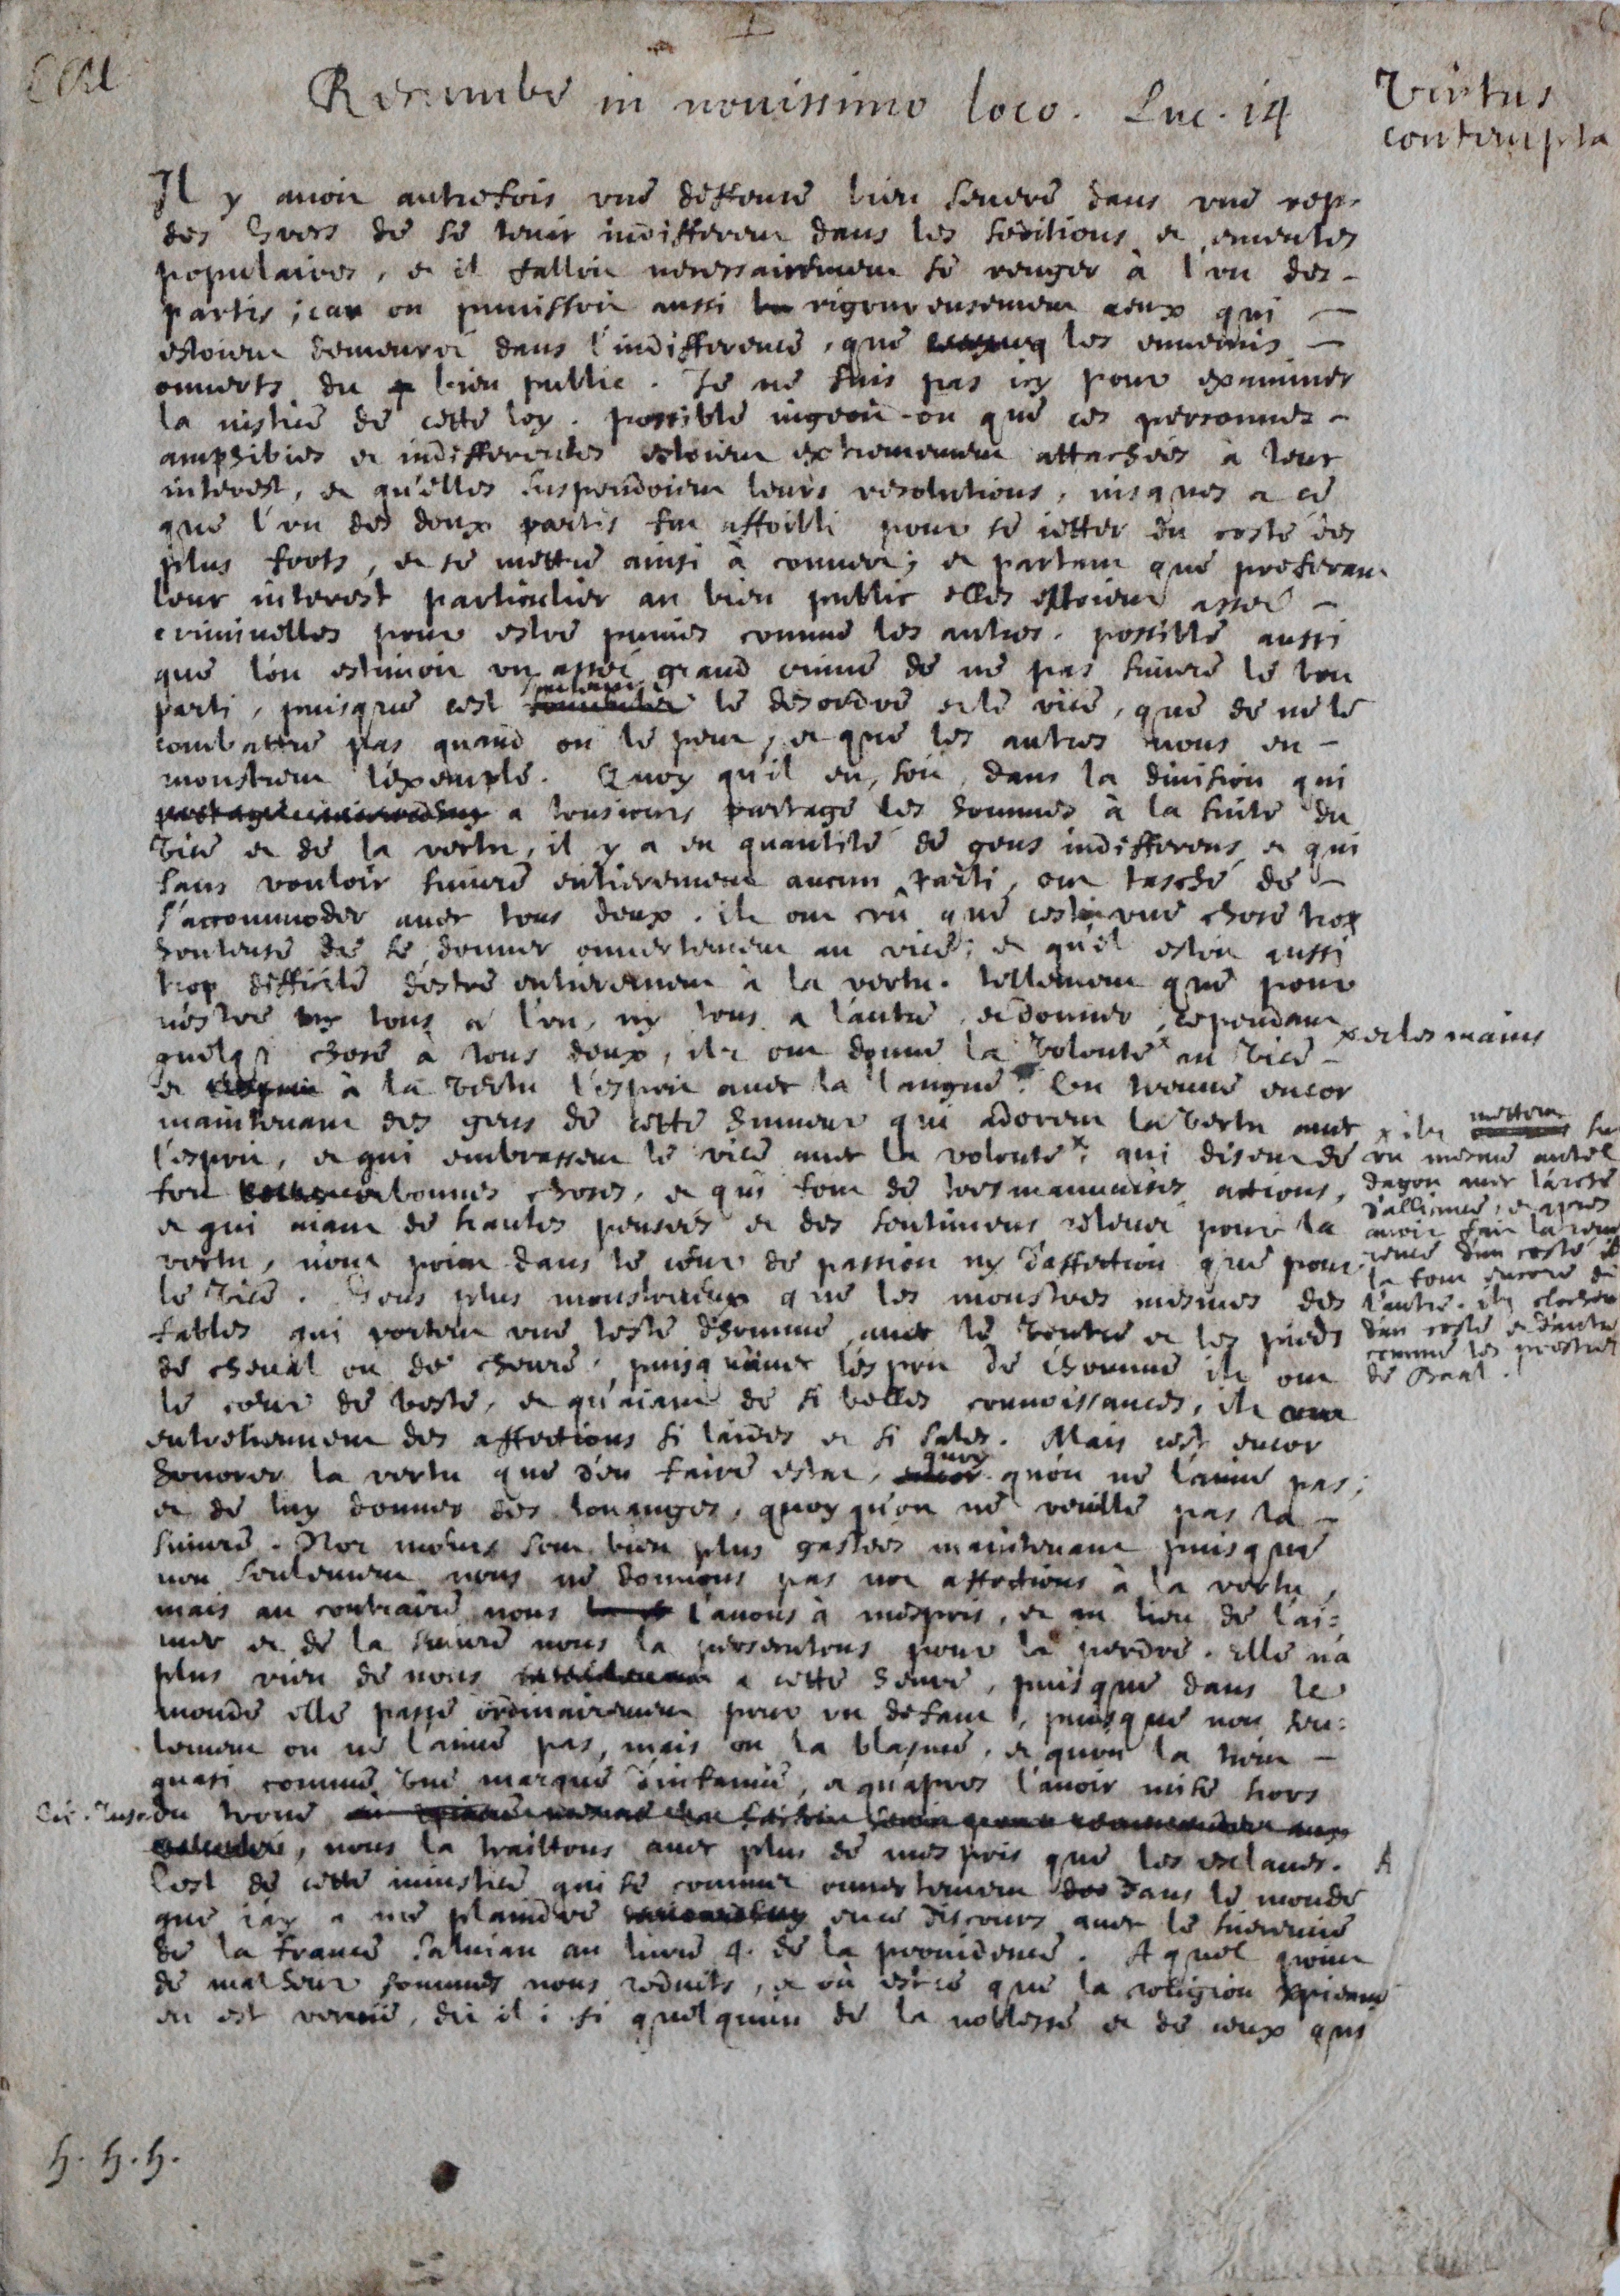 Recumbe in nouissimo loco. Luc. 14
Virtus
contempta
Il y auoit autrefois vne deffense bien seuere dans vne rep.
des Grecs de se tenir indifferent dans les seditions et emeutes
populaires, et il falloit necessairement se renger à l'vn des
partis; car on punissoit aussi rigoureusement ceux qui
estoient demeuré dans l'indifference, que les ennemis
ouuerts du bien public. Je ne suis pas icy pour examiner
la iustice de cette loy. possible iugeoit-on que ces personnes
amphibies et indifferentes estoient extremement attachées à leur
interest, et qu'elles suspendoient leurs resolutions, iusques a ce
que l'vn des deux partis fut affoibli pour se ietter du costé des
plus forts, et se mettre ainsi à couuert; et partant que preferant
leur interest particulier au bien public elles estoient assé
criminelles pour estre punies comme les autres. possible aussi
que l'on estimoit vn assé grand crime de ne pas suiure le bon
parti, puisque c'est le desordre et le vice, que de ne le
combattre pas quand on le peut, et que les autres nous en
monstrent l'exemple. Quoy qu'il en soit, dans la diuision qui
a tousiours partagé les hommes à la suite du
vice et de la vertu, il y a eu quantité de gens indifferens et qui
sans vouloir suiure entierement aucun parti, ont tasché de
s'accommoder auec tous deux. ils ont crû que c'estoit vne chose trop
honteuse de se donner ouuertement au vice; et qu'il estoit aussi
trop difficile d'estre entierement à la vertu. tellement que pour
n'estre ny tous a l'vn, ny tous a l'autre, et donner cependant
quelq; chose à tous deux, ils ont donné la volonté x au vice
x et les mains
et à la vertu l'esprit auec la langue. On trouue encor
maintenant des gens de cette humeur qui adorent la vertu auec
l'esprit, et qui embrassent le vice auec la volonté x; qui disent de
fort bonnes choses, et qui font de tres mauuaises actions,
et qui aiant de hautes pensées et des sentimens releué pour la
vertu, n'ont point dans le cœur de passion ny d'affection que pour
le vice. Gens plus monstrueux que les monstres mesmes des
fables qui portent vne teste d'homme auec le ventre et les pieds
de cheual ou de cheure, puisqu'auec l'esprit de l'homme ils ont
le cœur de beste, et qu'aiant de si belles connoissances, ils
entretiennent des affections si laides et si sales. Mais c'est encor
x ils mettent su
vn mesme autel
dagon auec l'arche
d'alliance, et apres
auoir fait la reue
rence d'un costé ils
la font encore de
l'autre. ils clochent
d'un costé et d'autre
comme les prestres
de Baal.
honorer la vertu que d'en faire estat, quoy qu'on ne l'aime pas;
et de luy donner des louanges, quoy qu'on ne veuille pas la
suiure. Nos mœurs sont bien plus gastées maintenant puisque
non seulement nous ne donnons pas nos affections à la vertu,
mais au contraire nous l'auons à mespris, et au lieu de l'ai=
mer et de la suiure nous la persecutons pour la perdre. Elle n'a
plus rien de nous a cette heure, puisque dans le
monde elle passe ordinairement pour vn defaut, puisque non seu=
lement on ne l'aime pas, mais on la blasme, et qu'on la tient
quasi comme vne marque d'infamie, et qu'apres l'auoir mise hors
du trone
, nous la traittons auec plus de mespris que les esclaues. A
C'est de cette iniustice qui se commet ouuertement dans le monde
que i'ay a me plaindre en ce discours auec le Hieremie
de la France Saluian au liure 4. de la prouidence. A quel point
de malheur sommes nous reduits, et où est-ce que la religion xpienne
en est venuë, dit il; si quelquun de la noblesse et de ceux qui
h. h. h.